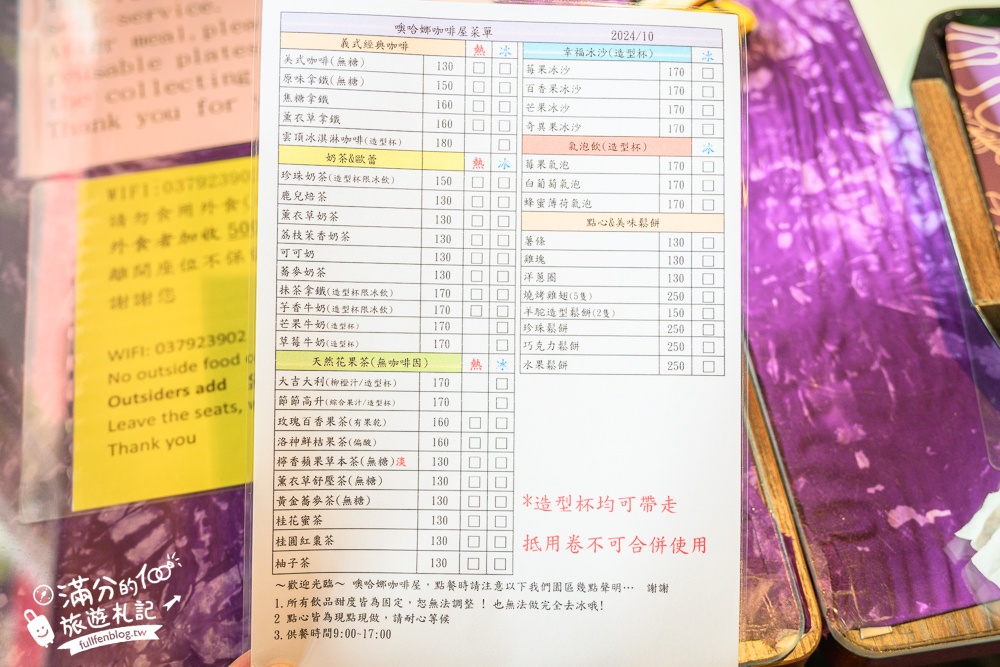 service.
meal, please
plates
collecting
Thank you for
WIFI: 037923902
請勿食用外食
外食者加收
離開座位不
謝謝您
WIFI: 037923902
No outside food
Outsiders add
Leave the seats,
Thank you
噢哈娜咖啡屋菜單 2024/10
義式經典咖啡 熱 冰
美式咖啡(無糖) 130 □ □
原味拿鐵(無糖) 150 □ □
焦糖拿鐵 160 □ □
薰衣草拿鐵 160 □ □
雲頂冰淇淋咖啡(造型杯) 180 □
奶茶&歐蕾 熱 冰
珍珠奶茶(造型杯限冰飲) 150 □ □
鹿兒焙茶 130 □ □
薰衣草奶茶 130 □ □
荔枝茉香奶茶 130 □ □
可可奶 130 □ □
蕎麥奶茶 130 □ □
抹茶拿鐵(造型杯限冰飲) 170 □ □
芋香牛奶(造型杯限冰飲) 170 □ □
芒果牛奶(造型杯) 170 □
草莓牛奶(造型杯) 170 □
天然花果茶(無咖啡因) 熱 冰
大吉大利(柳橙汁/造型杯) 170 □
節節高升(綜合果汁/造型杯) 170 □
玫瑰百香果茶(有果乾) 160 □ □
洛神鮮桔果茶(偏酸) 160 □ □
檸香蘋果草本茶(無糖)淡 130 □ □
薰衣草舒壓茶(無糖) 130 □ □
黃金蕎麥茶(無糖) 130 □ □
桂花蜜茶 130 □ □
桂圓紅棗茶 130 □ □
柚子茶 130 □ □
幸福冰沙(造型杯) 冰
莓果冰沙 170 □
百香果冰沙 170 □
芒果冰沙 170 □
奇異果冰沙 170 □
氣泡飲(造型杯) 冰
莓果氣泡 170 □
白葡萄氣泡 170 □
蜂蜜薄荷氣泡 170 □
點心&美味鬆餅
薯條 130 □
雞塊 130 □
洋蔥圈 130 □
燒烤雞翅(5隻) 250 □
羊駝造型鬆餅(2隻) 150 □
珍珠鬆餅 250 □
巧克力鬆餅 250 □
水果鬆餅 250 □
*造型杯均可帶走
抵用卷不可合併使用
～歡迎光臨～ 噢哈娜咖啡屋，點餐時請注意以下我們園區幾點聲明⋯ 謝謝
1.所有飲品甜度皆為固定，恕無法調整！也無法做完全去冰哦!
2 點心皆為現點現做，請耐心等候
3.供餐時間9:00~17:00
滿分的
旅遊札記
fullfenblog.tw